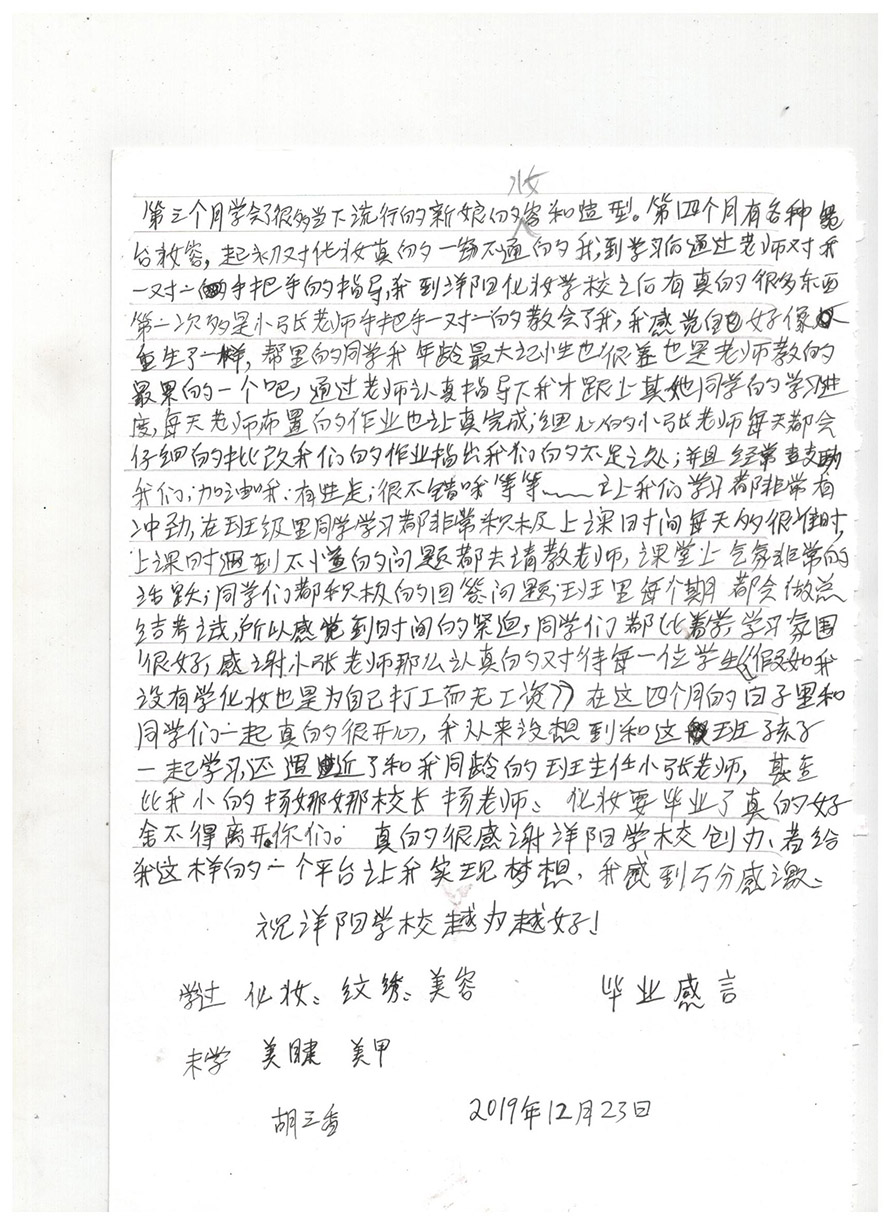 妆
第三个月学会了很多当下流行的新娘的容和造型。第四个月有各种舞
台妆容,起初对化妆真的一窍不通的我,到学习后通过老师对我
一对一的手把手的指导,我到洋阳化妆学校之后有真的很多东西
第一次都是小张老师手把手一对一的教会了我,我感觉自己好像
重生了一样,帮里的同学我年龄最大记性也很差也是老师教的
最累的一个吧,通过老师认真指导下我才跟上其她同学的学习进
度,每天老师布置的作业也认真完成;细心的小张老师每天都会
仔细的批改我们的作业指出我们的不足之处;并且经常鼓励
我们;加油哦.有些走;很不错哦等等——让我们学习都非常有
冲劲,在班级里同学学习都非常积极上课时间每天都很准时,
上课时遇到不懂的问题都去请教老师,课堂上气氛非常的
活跃;同学们都积极的回答问题;班里每个期都会做总
结考试,所以感觉到时间的紧迫,同学们都比着学,学习氛围
很好,感谢小张老师那么认真的对待每一位学生《假如我
没有学化妆也是为自己打工而无工资》在这四个月的日子里和
同学们一起真的很开心,我从来没想到和这班孩子
一起学习,还遇近了和我同龄的班主任小张老师,甚至
比我小的杨娜娜校长 杨老师、化妆要毕业了真的好
舍不得离开你们。真的很感谢洋阳学校创办者给
我这样的一个平台让我实现梦想,我感到万分感激、
祝洋阳学校越办越好!
学过 化妆、纹绣、美容 毕业感言
未学 美睫 美甲
胡三香 2019年12月23日